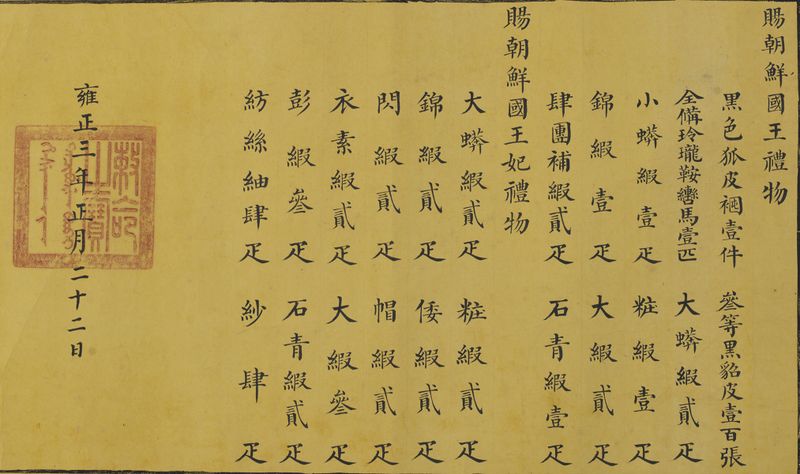 賜朝鮮國王禮物
黑色狐皮襕壹件 叄等黑貂皮壹百張
全備玲瓏鞍轡馬壹匹 大蟒緞貳疋
小蟒緞壹疋 粧緞壹疋
錦緞壹疋 大緞貳疋
肆團補緞貳疋 石青緞壹疋
賜朝鮮國王妃禮物
大蟒緞貳疋 粧緞貳疋
錦緞貳疋 倭緞貳疋
閃緞貳疋 帽緞貳疋
衣素緞貳疋 大緞叄疋
彭緞叄疋 石青緞貳疋
紡絲紬肆疋 紗肆疋
雍正三年正月二十二日
敕命之寶